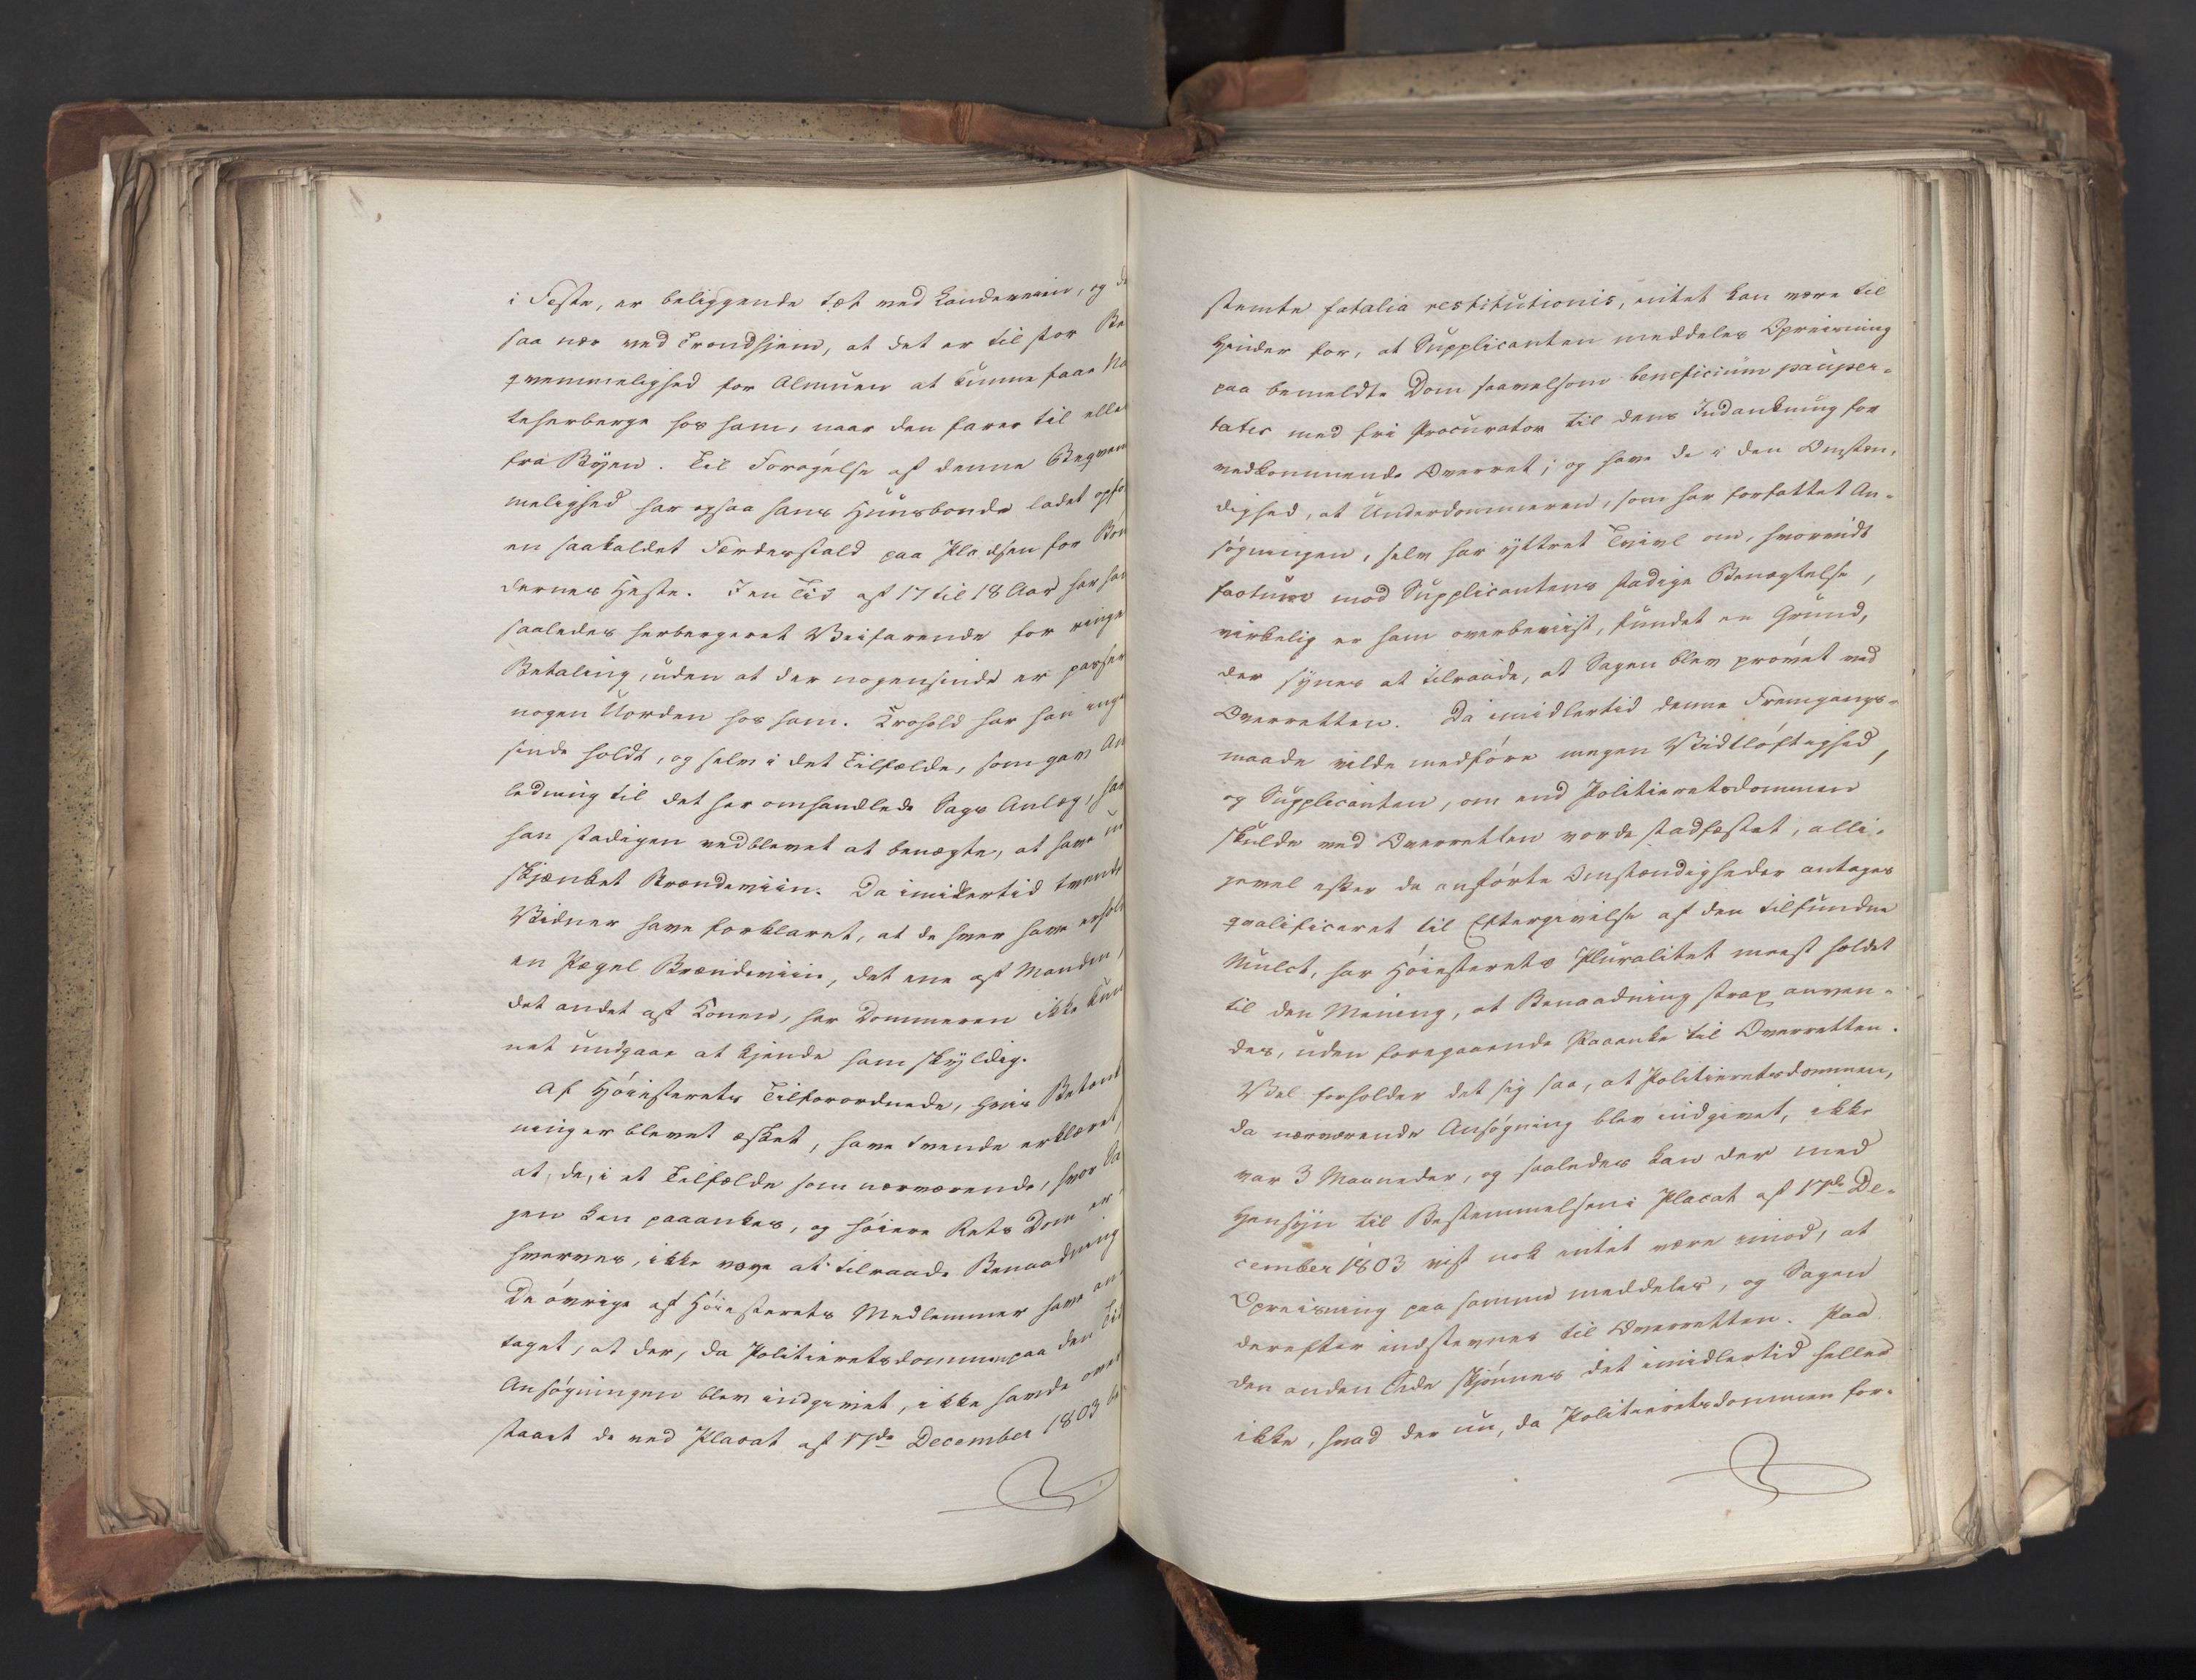 i Feste, er beliggende tæt ved Landeveien, og de
saa nær ved Trondhjem, at det er til stor Be
qvemmelighed for Almuen at kunne faae Na
teherberge hos ham, naar den farer til elle
fra Byen. Til Forøgelse af denne Beqvem
melighed har ogsaa hans Huusbonde ladet opfø
en saakaldet Færdesstald paa Pladsen for Bøn
dernes Heste. I en Tid af 17 til 18 Aar har han
saaledes herbergeret Veifarende for ringe
Betaling, uden at der nogensinde er passer
nogen Uorden hos ham. Krohold har han inge
sinde holdt, og selv i det Tilfælde, som gav An
ledning til det her omhandlede Sags Anlæg, har
han stadigen vedblevet at benægte, at have ud
skjænket Brændeviin. Da imidlertid tvende
Vidner have forklaret, at de hver have erhold
en Pægel Brændeviin, det ene af Manden,
det andet af Konen, har Dommeren ikke kun
net undgaae at kjende ham skyldig.
Af Høiesterets Tilforordnede, hvis Betænk
ning er blevet æsket, have tvende erklæret,
at de, i et Tilfælde som nærværende, hvor Sa
gen kan paaankes, og høiere Rets Dom er
hverves, ikke vove at tilraade Benaadning
De øvrige af Høiesterets Medlemmer have an
taget, at der, da Politieretsdommen paa den Tid
Ansøgningen blev indgivet, ikke havde over
staaet de ved Placat af 17de December 1803 be
stemte fatalia restitutionis, intet kan være til
Hinder for, at Supplicanten meddeles Opreisning
paa bemeldte Dom saavelsom beneficium pauper-
tatis med fri Procurator til dens Indankning for
vedkommende Overret; og have de i den Omstæn-
dighed, at Underdommeren, som har forfattet An-
søgningen, selv har yttret Tvivl om, hvorvidt
factum mod Supplicantens stadige Benægtelse,
virkelig er ham overbeviist, fundet en Grund,
der synes at tilraade, at Sagen blev prøvet ved
Overretten. Da imidlertid denne Fremgangs-
maade vilde medføre megen Vidtløftighed,
og Supplicanten, om end Politieretsdommen
skulde ved Overretten vorde stadfæstet, alli-
gevel efter de anførte Omstændigheder antages
qvalificeret til Eftergivelse af den tilfundne
Mulct, har Høiesterets Pluralitet meest holdet
til den Mening, at Benaadning strax anven-
des, uden foregaaende Paaanke til Overretten.
Vel forholder det sig saa, at Politieretsdommen,
da nærværende Ansøgning blev indgivet, ikke
var 3 Maaneder, og saaledes kan der med
Hensyn til Bestemmelsen i Placat af 17de De-
cember 1803 vist nok intet være imod, at
Opreisning paa samme meddeles, og Sagen
derefter indstevnes til Overretten. Paa
den anden Side skjønnes det imidlertid heller
ikke, hvad der nu, da Politieretsdommen for-